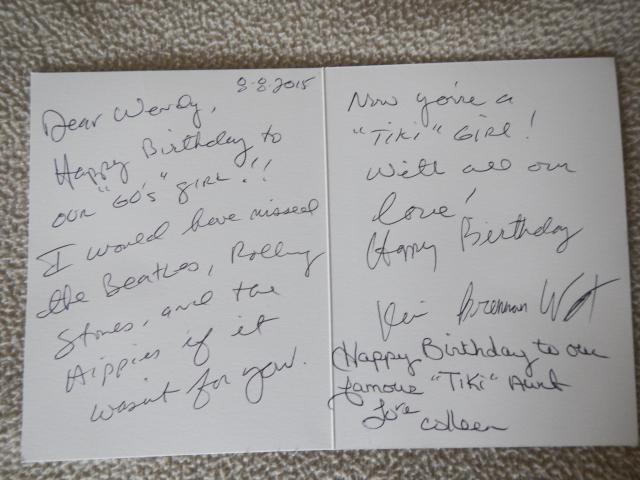 8-8-2015
Dear Wendy,
Happy Birthday to
our "60's" girl!!
I would have missed
the Beatles, Rolling
Stones, and the
Hippies if it
wasn't for you.
Now you're a
"Tiki" Girl!
With all our
love!
Happy Birthday
Brennan
Happy Birthday to our
famous "Tiki" Aunt
Love
Colleen